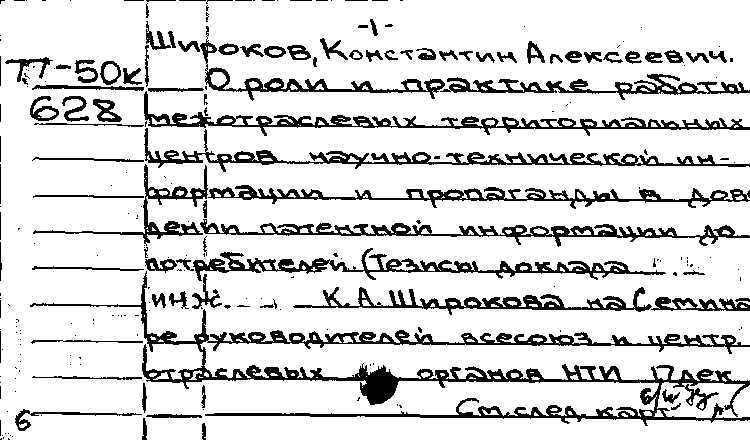 -1-
Широков, Константин Алексеевич.
77-50к О роли и практике работы
628 межотраслевых территориальных
центров научно-технической ин-
формации и пропаганды в дове
дении патентной информации до
потребителей. (Тезисы доклада
инж. К. А. Широкова на Семина
ре руководителей всесоюз и центр.
отраслевых органов НТИ 17 дек
См. след. карт.
6